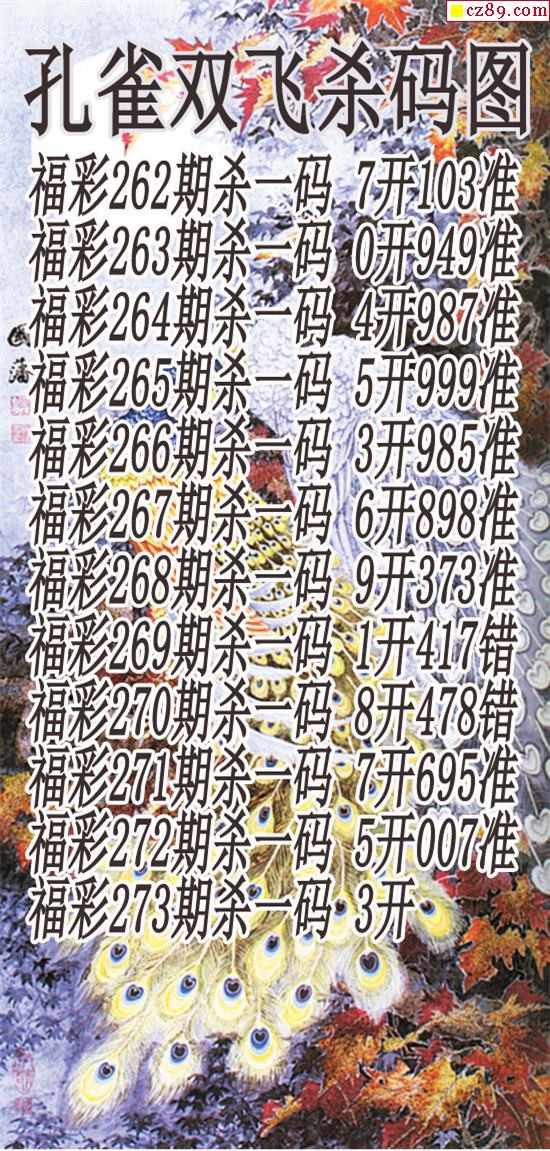 cz89.com
孔雀双飞杀码图
福彩262期杀一码 7开103准
福彩263期杀一码 0开949准
福彩264期杀一码 4开987准
福彩265期杀一码 5开999准
福彩266期杀一码 3开985准
福彩267期杀一码 6开898准
福彩268期杀一码 9开373准
福彩269期杀一码 1开417错
福彩270期杀一码 8开478错
福彩271期杀一码 7开695准
福彩272期杀一码 5开007准
福彩273期杀一码 3开